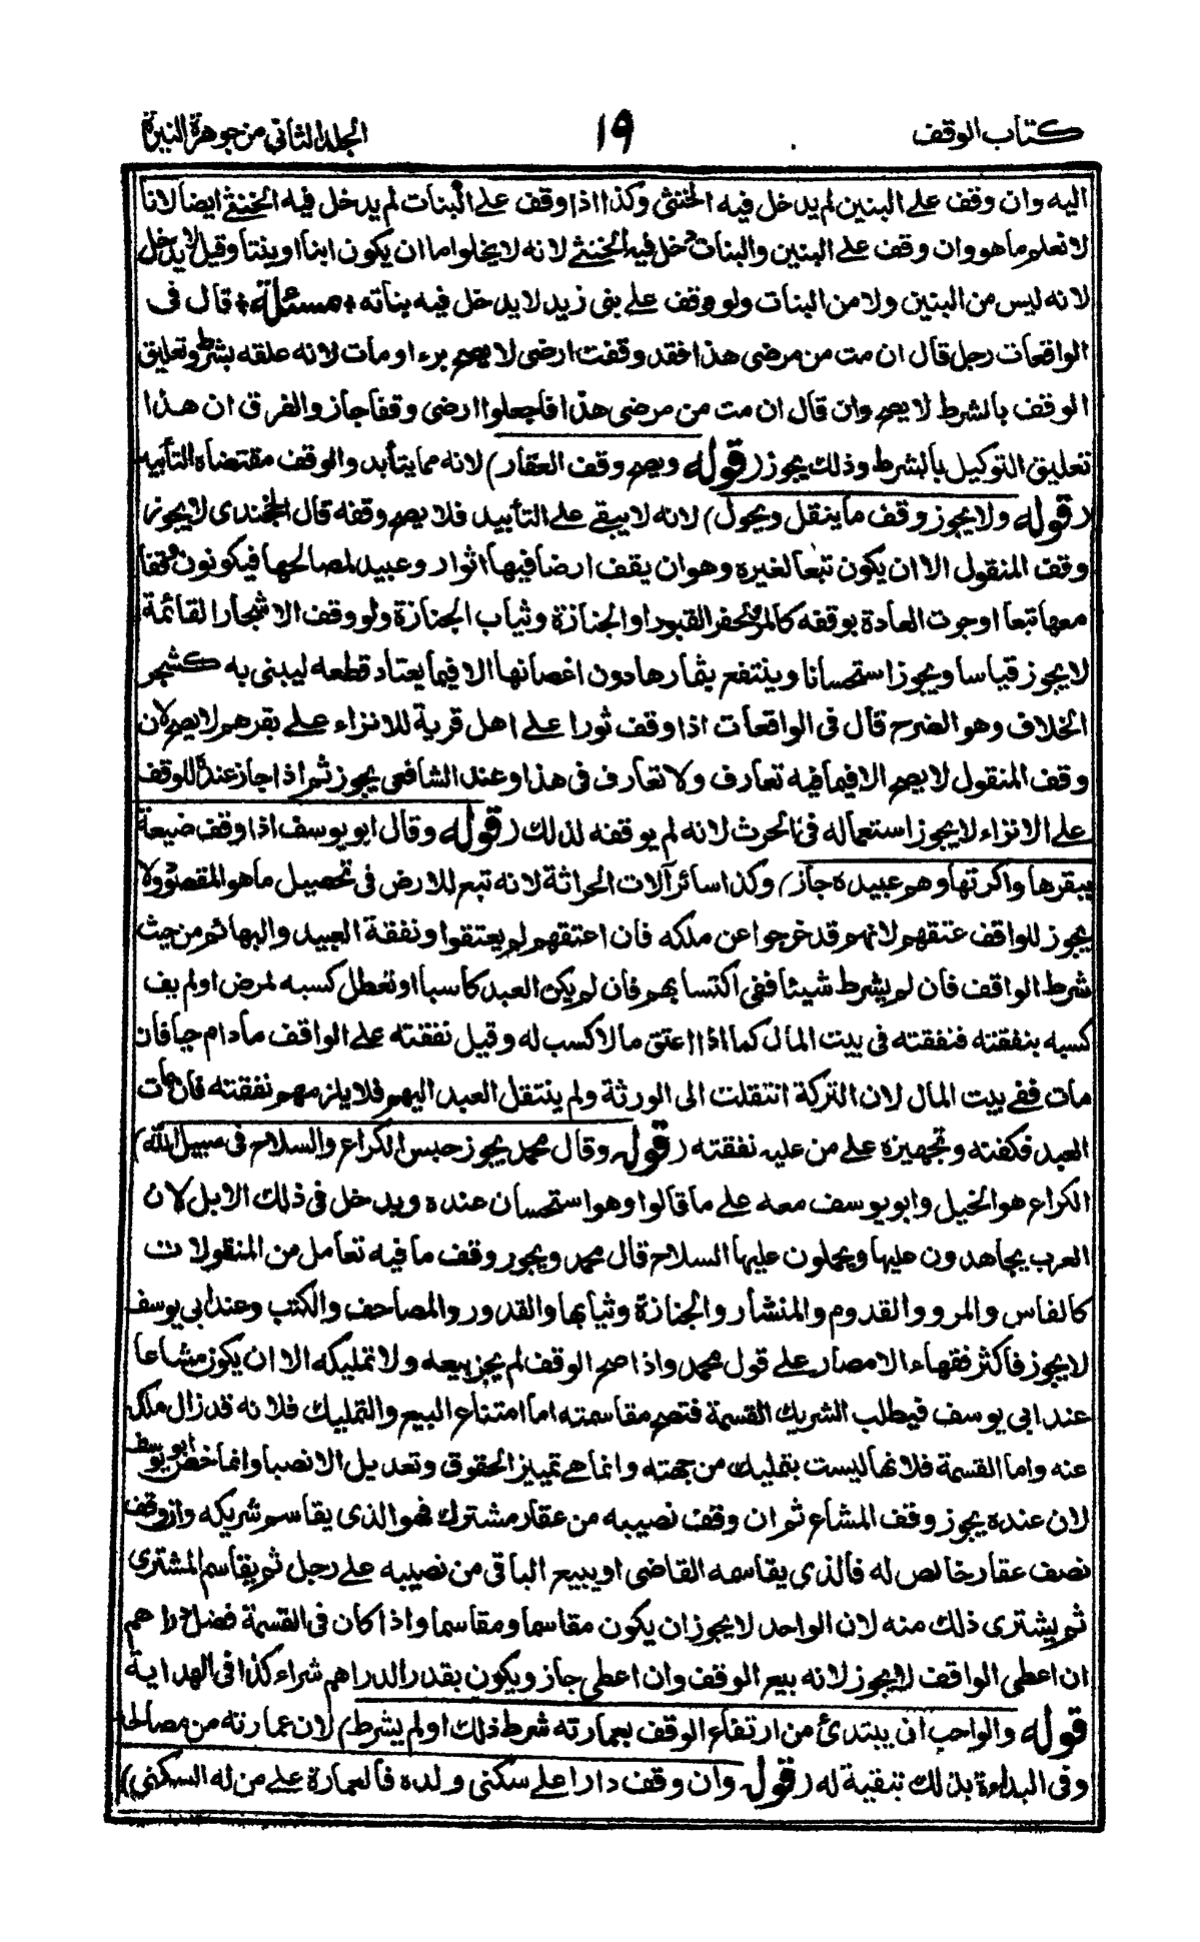 كتاب الوقف ١٩ الجلد الثاني من جوهرة النيرة
اليه وان وقف على البنين لم يدخل فيه الخنثى وكذا اذا وقف على البنات لم يدخل فيه الخنثى ايضا لانا
لا نعلم ما هو وان وقف على البنين والبنات دخل فيه الخنثى لانه لا يخلوا اما ان يكون ابنا او بنتا وقيل لا يدخل
لانه ليس من البنين ولا من البنات ولو وقف على بنى زيد لا يدخل فيه بناته * مسئلة * قال فى
الواقعات رجل قال ان مت من مرضى هذا فقد وقفت ارضى لا يصح برء او مات لانه علقه بشرط وتعليق
الوقف بالشرط لا يصح وان قال ان مت من مرضى هذا فاجعلوا ارضى وقفا جاز والفرق ان هذا
تعليق التوكيل بالشرط وذلك يجوز (قوله ويصح وقف العقار) لانه مما يتأبد والوقف مقتضاه التأبيد
(قوله ولا يجوز وقف ما ينقل ويحول) لانه لا يبقى على التأبيد فلا يصح وقفه قال الخجندى لا يجوز
وقف المنقول الا ان يكون تبعا لغيره وهو ان يقف ارضا فيها اثوار وعبيد لمصالحها فيكونون وقفا
معها تبعا او جرت العادة بوقفه كالمر لحفر القبور او الجنازة وثياب الجنازة ولو وقف الاشجار القائمة
لا يجوز قياسا ويجوز استحسانا وينتفع بثمارها دون اغصانها الا فيما يعتاد قطعه ليبنى به كشجر
الخلاف وهو الضرح قال فى الواقعات اذا وقف ثورا على اهل قرية للانزاء على بقرهم لا يصح لان
وقف المنقول لا يصح الا فيما فيه تعارف ولا تعارف فى هذا وعند الشافعى يجوز ثم اذا جاز عنده للوقف
على الانزاء لا يجوز استعماله فى الحرث لانه لم يوقفه لذلك (قوله وقال ابو يوسف اذا وقف ضيعة
ببقرها واكرتها وهم عبيده جاز) وكذا سائر آلات الحراثة لانه تبع للارض فى تحصيل ما هو المقصود ولا
يجوز للواقف عتقهم لانهم قد خرجوا عن ملكه فان اعتقهم لم يعتقوا ونفقة العبيد والبهائم من حيث
شرط الواقف فان لم يشرط شيئا ففى اكتسابهم فان لم يكن العبد كاسبا او تعطل كسبه لمرض او لم يف
كسبه بنفقته فنفقته فى بيت المال كما اذا اعتق مالا كسب له وقيل نفقته على الواقف ما دام حيا فان
مات ففى بيت المال لان التركة انتقلت الى الورثة ولم ينتقل العبد اليهم فلا يلزمهم نفقته فان مات
العبد فكفنته وتجهيزه على من عليه نفقته (قوله وقال محمد يجوز حبس الكراع والسلاح فى سبيل الله)
الكراع هو الخيل وابو يوسف معه على ما قالوا وهو استحسان عنده ويدخل فى ذلك الابل لان
العرب يجاهدون عليها ويحملون عليها السلاح قال محمد ويجوز وقف ما فيه تعامل من المنقولات
كالفاس والمرو والقدوم والمنشار والجنازة وثيابها والقدور والمصاحف والكتب وعند ابى يوسف
لا يجوز فاكثر فقهاء الامصار على قول محمد واذا صح الوقف لم يجز بيعه ولا تمليكه الا ان يكون مشاعا
عند ابى يوسف فيطلب الشريك القسمة فتصح مقاسمته اما امتناع البيع والتمليك فلانه قد زال ملكه
عنه واما القسمة فلانها ليست بتمليك من جهته وانما هى تمييز الحقوق وتعديل الانصبا وانما خص ابو يوسف
لان عنده يجوز وقف المشاع ثم ان وقف نصيبه من عقار مشترك فهو الذى يقاسم شريكه وان وقف
نصف عقار خالص له فالذى يقاسمه القاضى او يبيع الباقى من نصيبه على رجل ثم يقاسم المشترى
ثم يشترى ذلك منه لان الواحد لا يجوز ان يكون مقاسما ومقاسما واذا كان فى القسمة فضل دراهم
ان اعطى الواقف لا يجوز لانه بيع الوقف وان اعطى جاز ويكون بقدر الدراهم شراء كذا فى الهداية
قوله والواجب ان يبتدئ من ارتفاع الوقف بعمارته شرط ذلك او لم يشرط) لان عمارته من مصالحه
وفى البداءة بذلك تبقية له (قوله وان وقف دارا على سكنى ولده فالعمارة على من له السكنى)